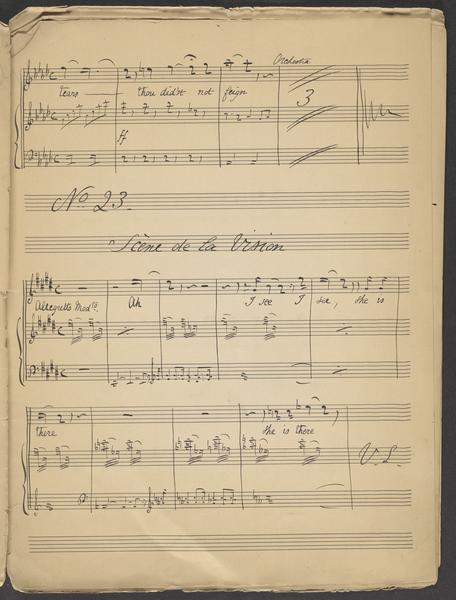 Orchestra
tears thou did'st not feign
3
ff
No. 23.
Scène de la Vision
Allegretto Modto.
Ah I see I see, she is
there she is there
V. S.